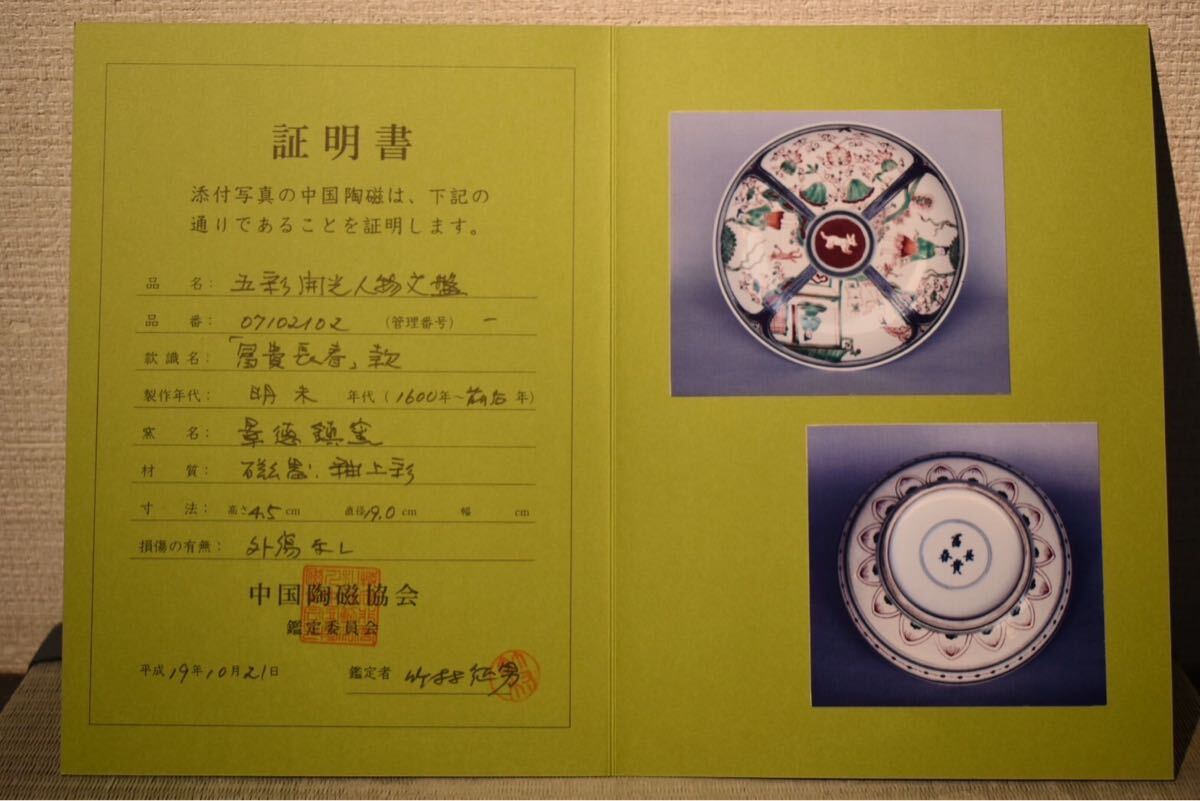 証明書
添付写真の中国陶磁は、下記の
通りであることを証明します。
品 名: 五彩開光人物文盤
品 番: 07102102 (管理番号) 一
款識名: 「富貴長春」款
製作年代: 明末 年代 (1600年～前后年)
窯 名: 景徳鎮窯
材 質: 磁器: 釉上彩
寸 法: 高さ4.5cm 直径19.0cm 幅 cm
損傷の有無: 外傷なし
中国陶磁協会
鑑定委員会
平成19年10月21日 鑑定者
富貴長春